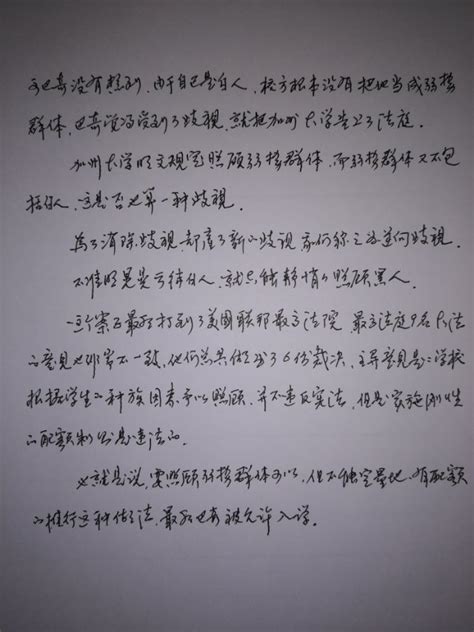 可巴奇没有想到，由于自己是白人，校方根本没有把他当成弱势
群体，巴奇觉得受到了歧视，就把加州大学告上了法庭。
加州大学明文规定照顾弱势群体，而弱势群体又不包
括白人，这是否也算一种歧视。
为了消除歧视，却产生了新的歧视，
不准明晃晃亏待白人，就只能静悄悄照顾黑人。
一个案子最后打到了美国联邦最高法院，最高法庭9名大法
的意见也非常不一致，他们总共做出了6份裁决，主要意见是：学校
根据学生的种族因素予以照顾，并不违反宪法，但是实施刚性
的配额制却是违法的。
也就是说，要照顾弱势群体可以，但不能定量地，有配额
的推行这种做法，最后巴奇被允许入学。